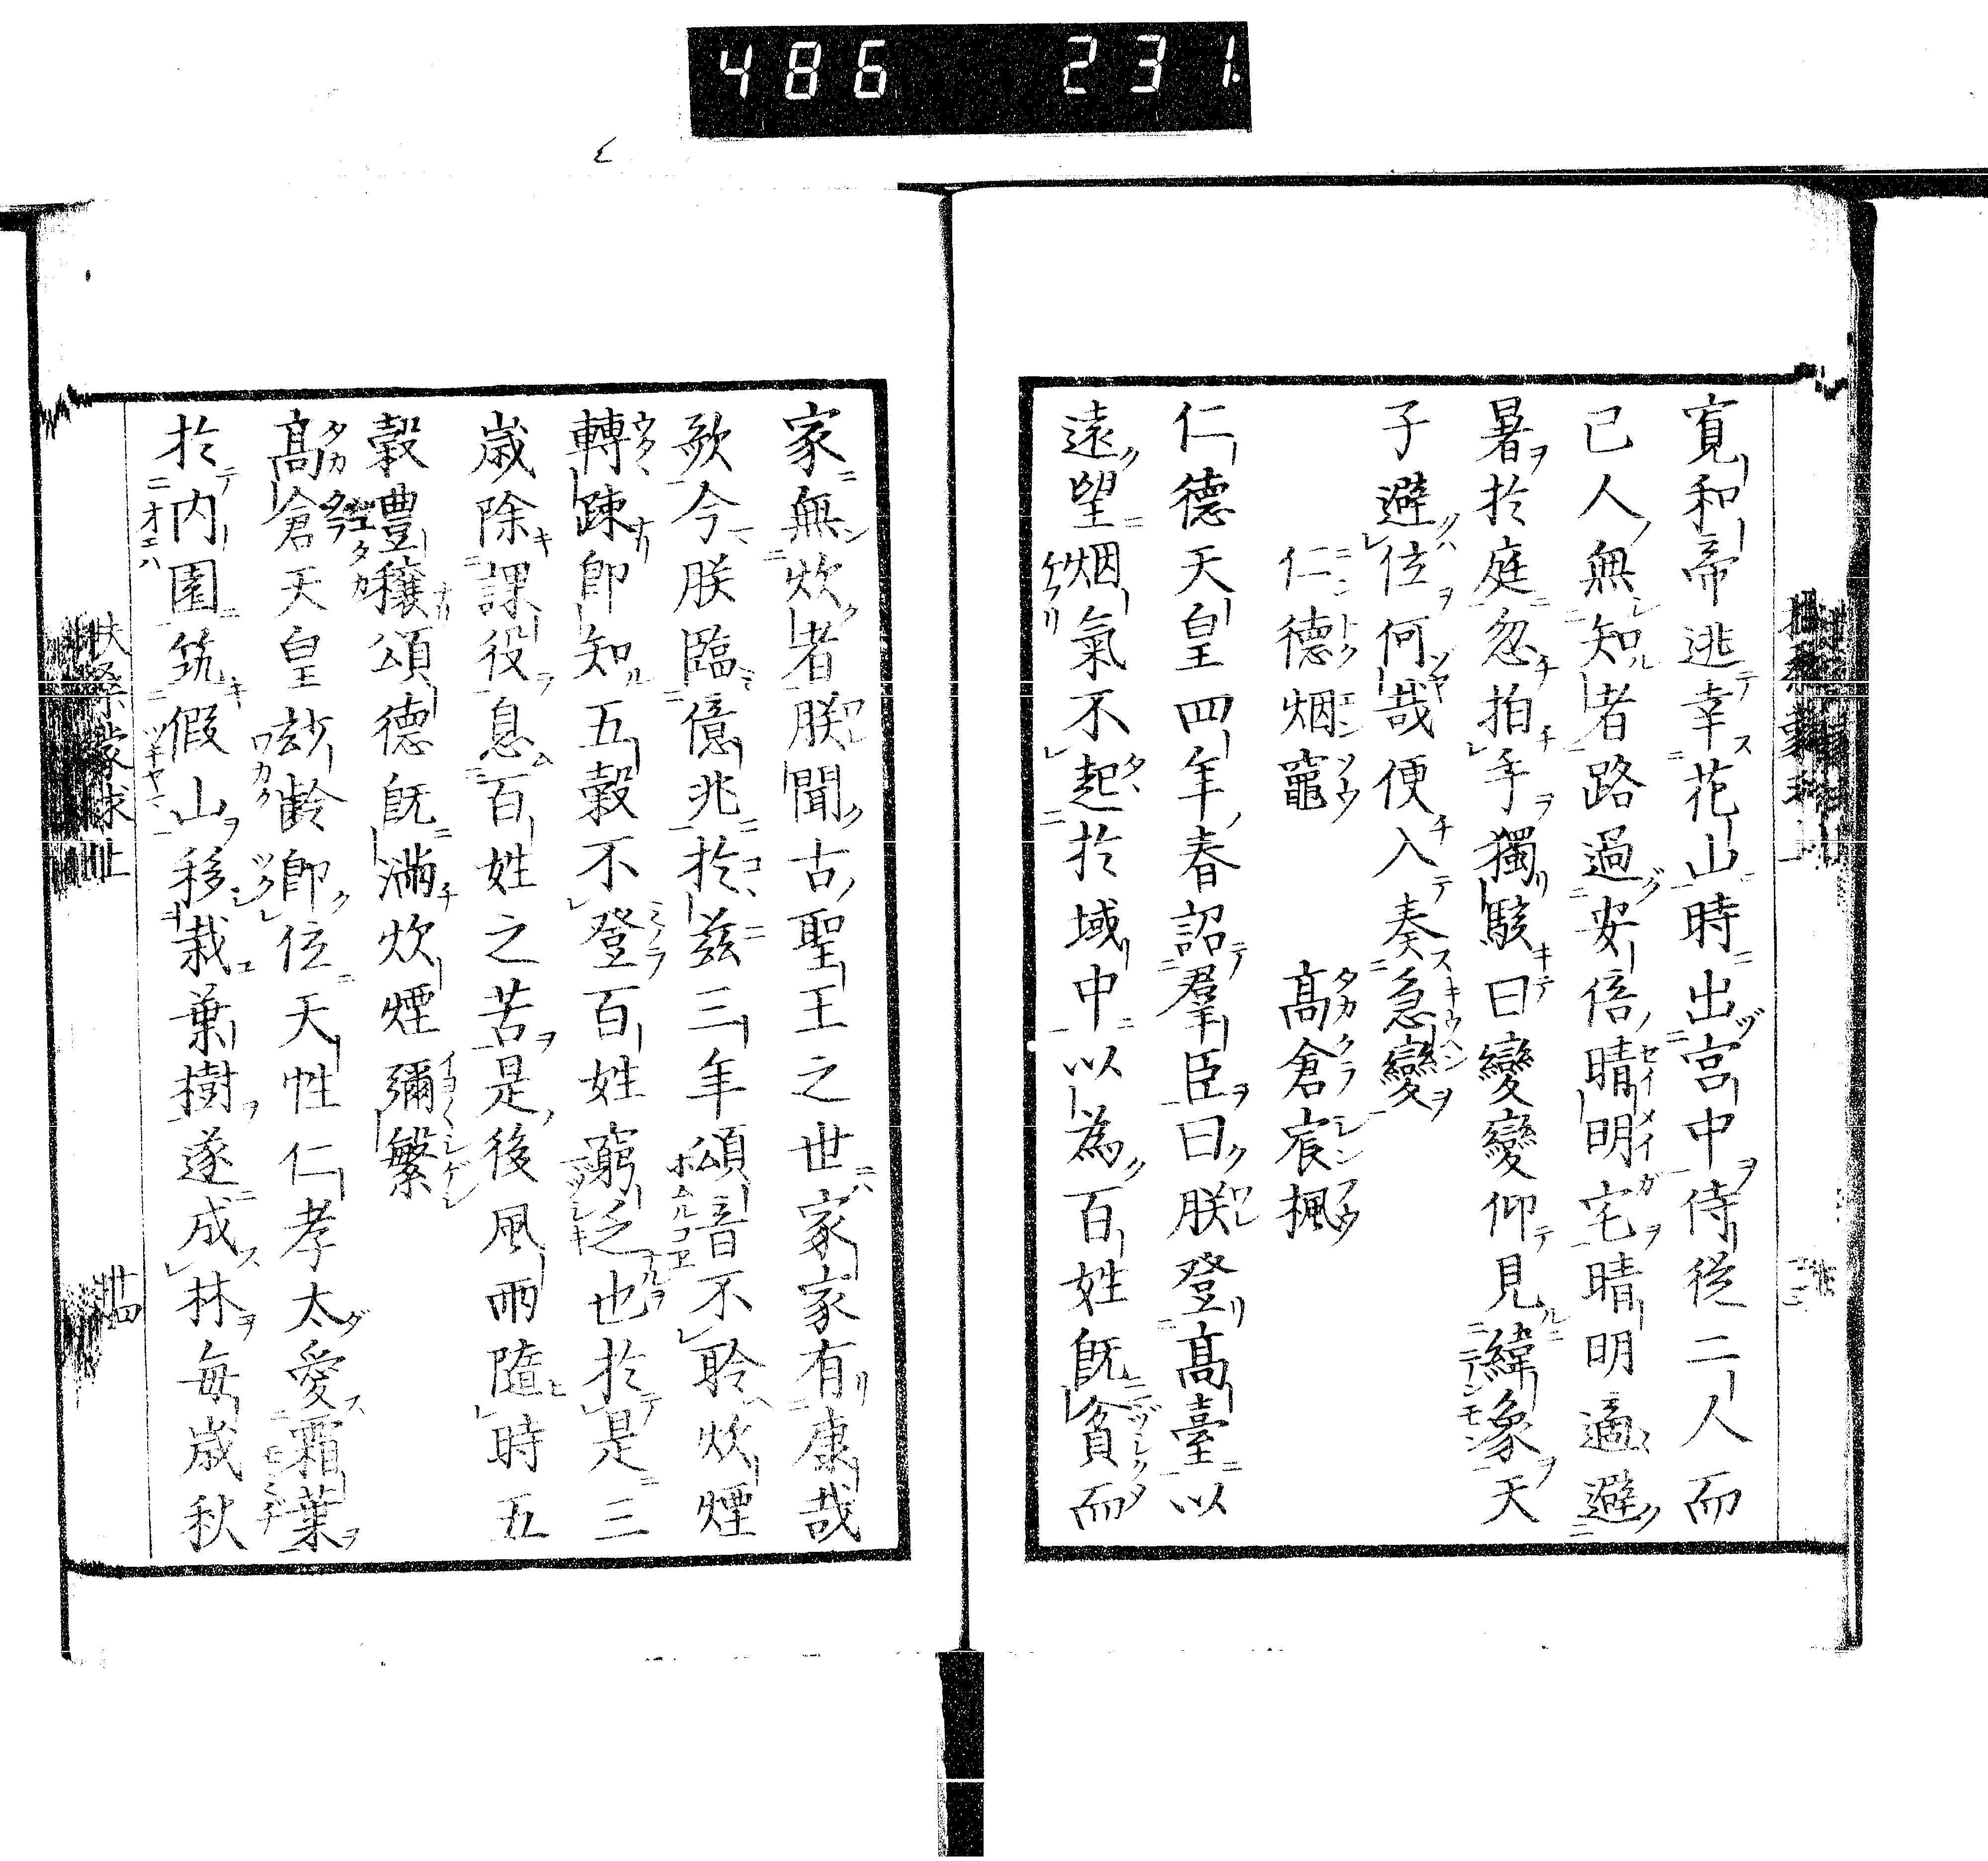 486 231.
寛和帝逃幸花山時出宮中侍従二人而
已人無知者路過安倍晴明宅晴明適避
暑於庭忽拍手獨駭曰變變仰見緯象天
子避位何哉便入奏急變
仁德烟竈 髙倉宸楓
仁德天皇四年春詔羣臣曰朕登髙臺以
遠望烟氣不起於域中以為百姓既貧而
家無炊者朕聞古聖王之世家家有康哉
歌今朕臨億兆於茲三年頌音不聆炊煙
轉踈即知五穀不登百姓窮乏也於是三
歳除課役息百姓之苦是後風雨隨時五
穀豊穰頌德既滿炊煙彌繁
髙倉天皇玅齡即位天性仁孝太愛霜葉
於内園築假山移栽葉樹遂成林每歳秋
扶桑蒙求上 廿四